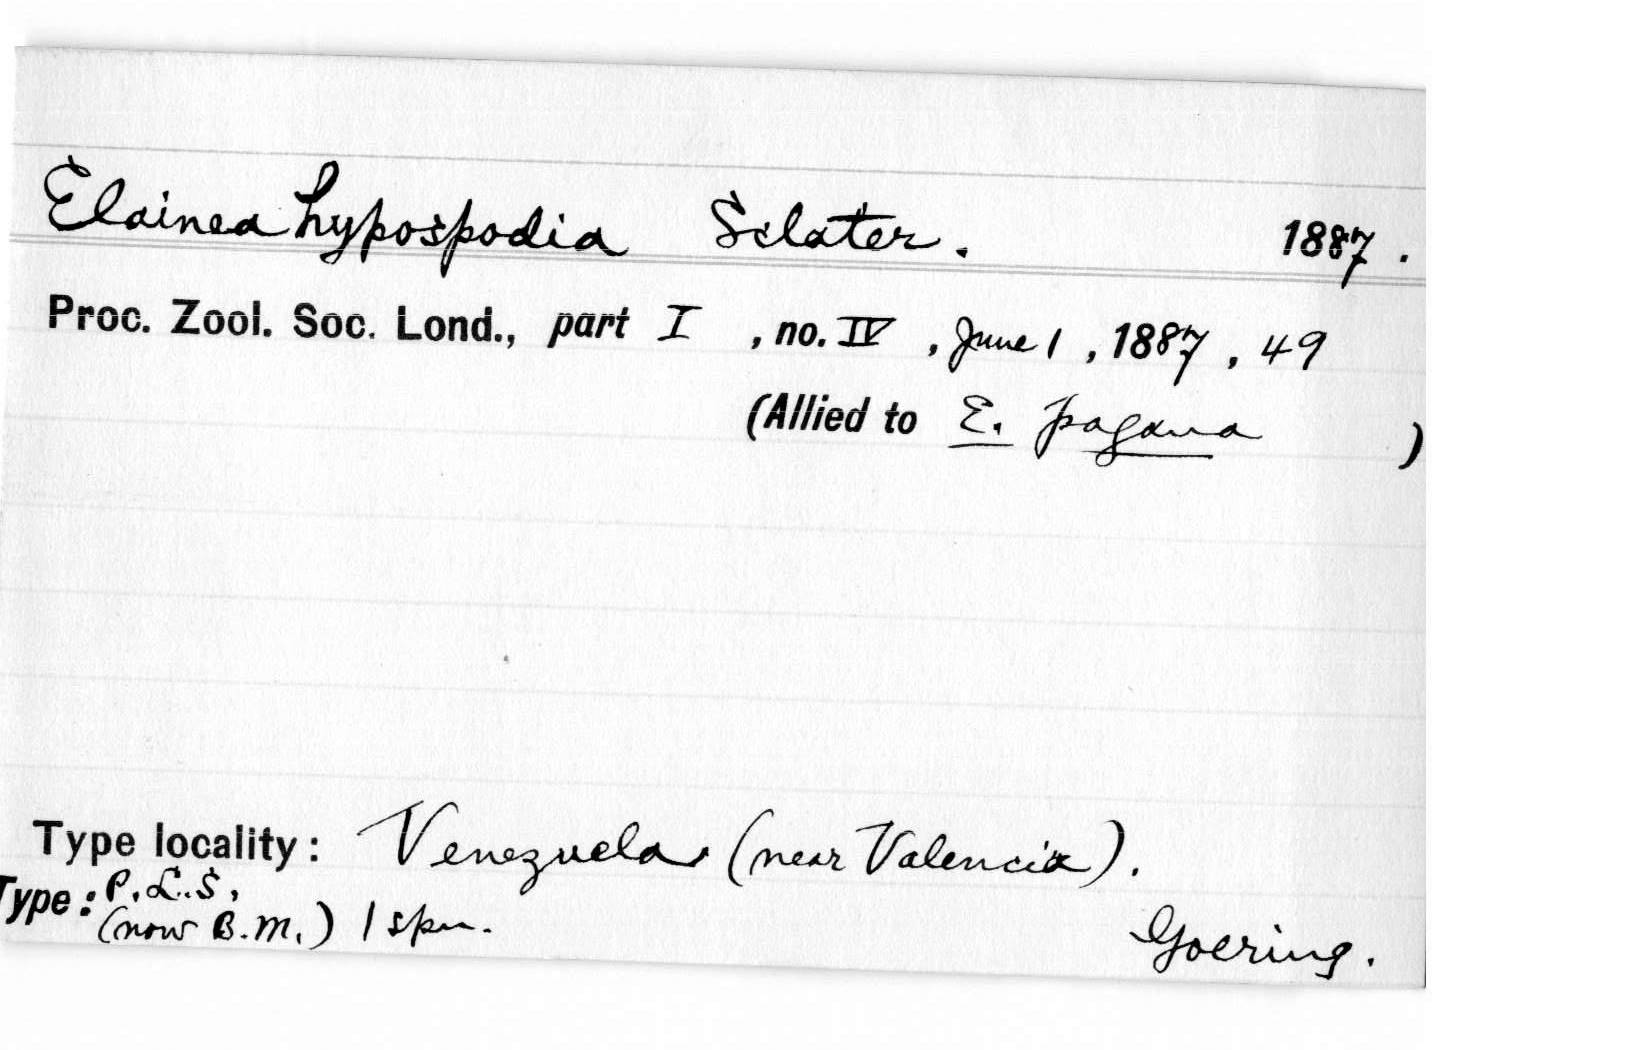 Elainea hypospodia Sclater. 1887.
Proc. Zool. Soc. Lond., part I, no. IV, June 1, 1887, 49
(Allied to E. pagana)
Type locality: Venezuela (near Valencia).
Type: P.L.S,
(now B.M.) 1 spm.
Goering.